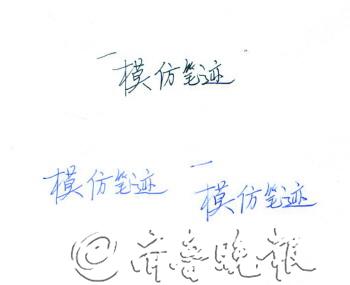 模仿笔迹
模仿笔迹 模仿笔迹
@齐鲁晚报